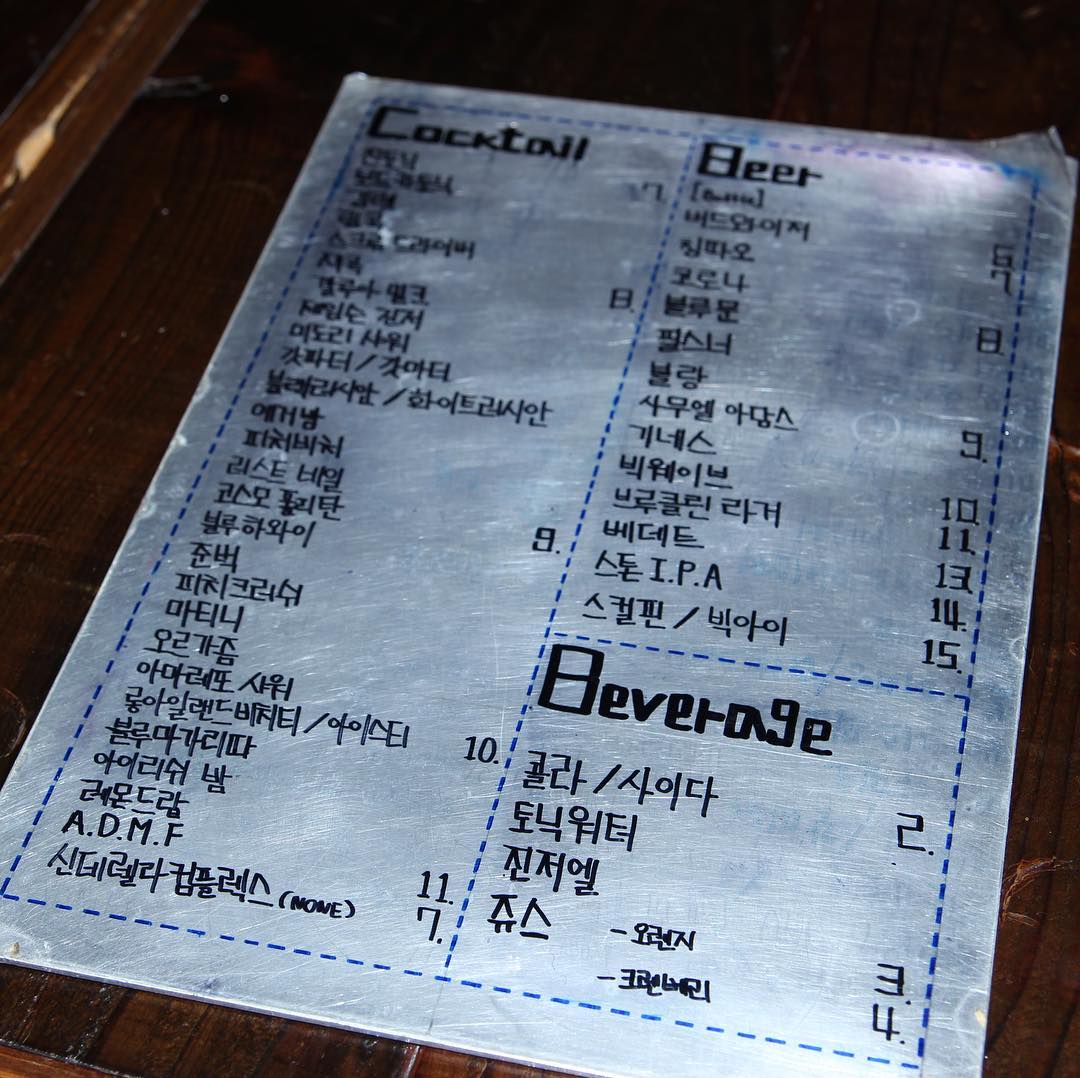 Cocktail
진토닉
보드카토닉 7.
김렛
스크류 드라이버
깔루아 밀크 8.
제임슨 진저
미도리 샤워
갓파더 / 갓마더
블랙러시안 / 화이트러시안
예거밤
피치비치
코스모폴리탄
블루하와이 9.
준벅
피치크러쉬
마티니
오르가즘
아마레또 샤워
롱아일랜드비치티 / 아이스티 10.
블루마가리따
아이리쉬 밤
레몬드랍
A.D.M.F 11.
신데렐라컴플렉스 (NONE) 7.
Beer
[Bottle]
버드와이저 6.
칭따오 7.
코로나
블루문 8.
필스너
블랑
사무엘 아담스 9.
기네스
빅웨이브 10.
브루클린 라거 11.
베데트 13.
스톤 I.P.A 14.
스컬핀 / 빅아이 15.
Beverage
콜라 / 사이다 2.
토닉워터
진저엘
쥬스 - 오렌지 3.
- 크렌베리 4.